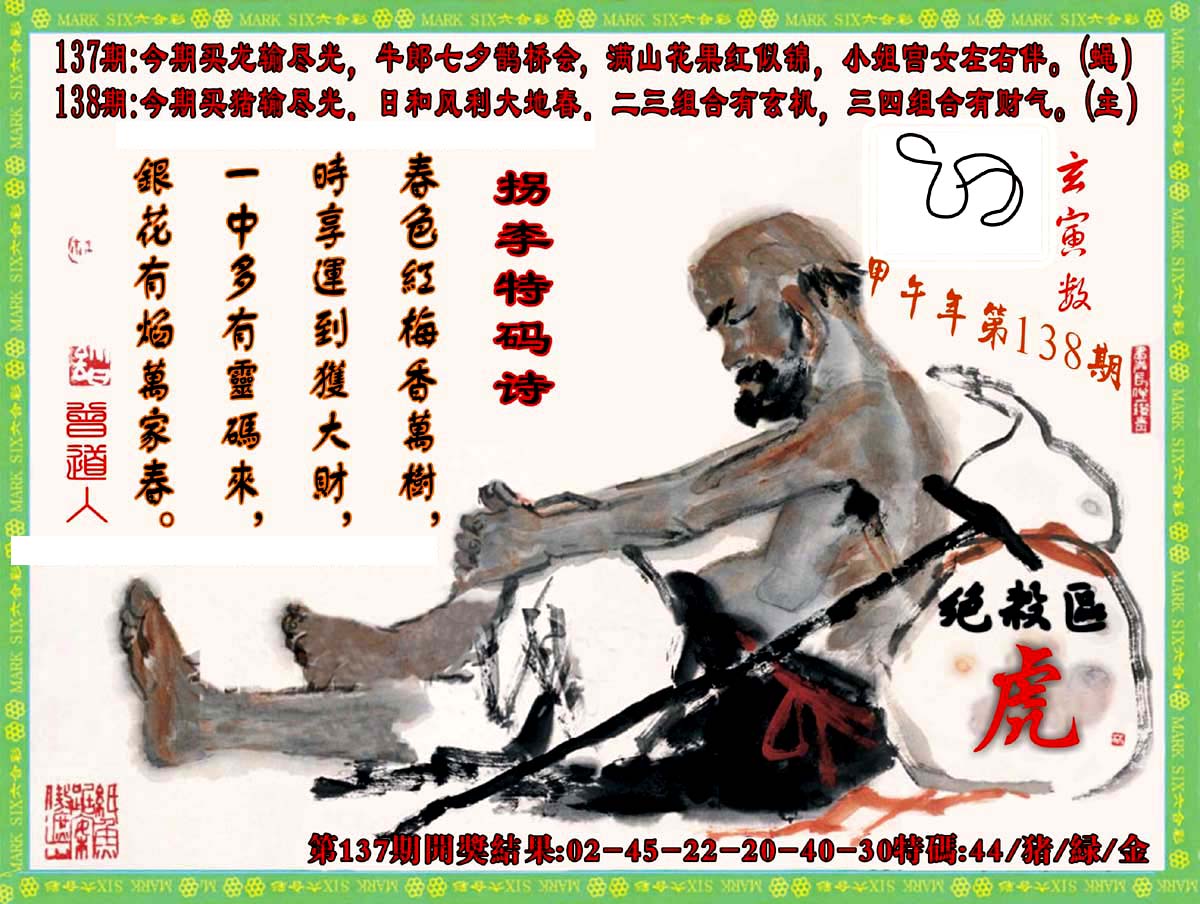 MARK SIX六合彩 MARK SIX六合彩 MARK SIX六合彩 MARK SIX六合彩 MARK SIX六合彩 MARK SIX六合彩 MARK SIX六合彩
137期:今期买龙输尽光，牛郎七夕鹊桥会，满山花果红似锦，小姐宫女左右伴。(蝇)
138期:今期买猪输尽光．日和风利大地春．二三组合有玄机，三四组合有财气。(主)
玄寅数
甲午年第138期
拐李特码诗
春色紅梅香萬樹，
時享運到獲大財，
一中多有靈碼來，
銀花有焰萬家春。
曾道人
绝杀区
虎
第137期開獎結果:02-45-22-20-40-30特碼:44/猪/緑/金